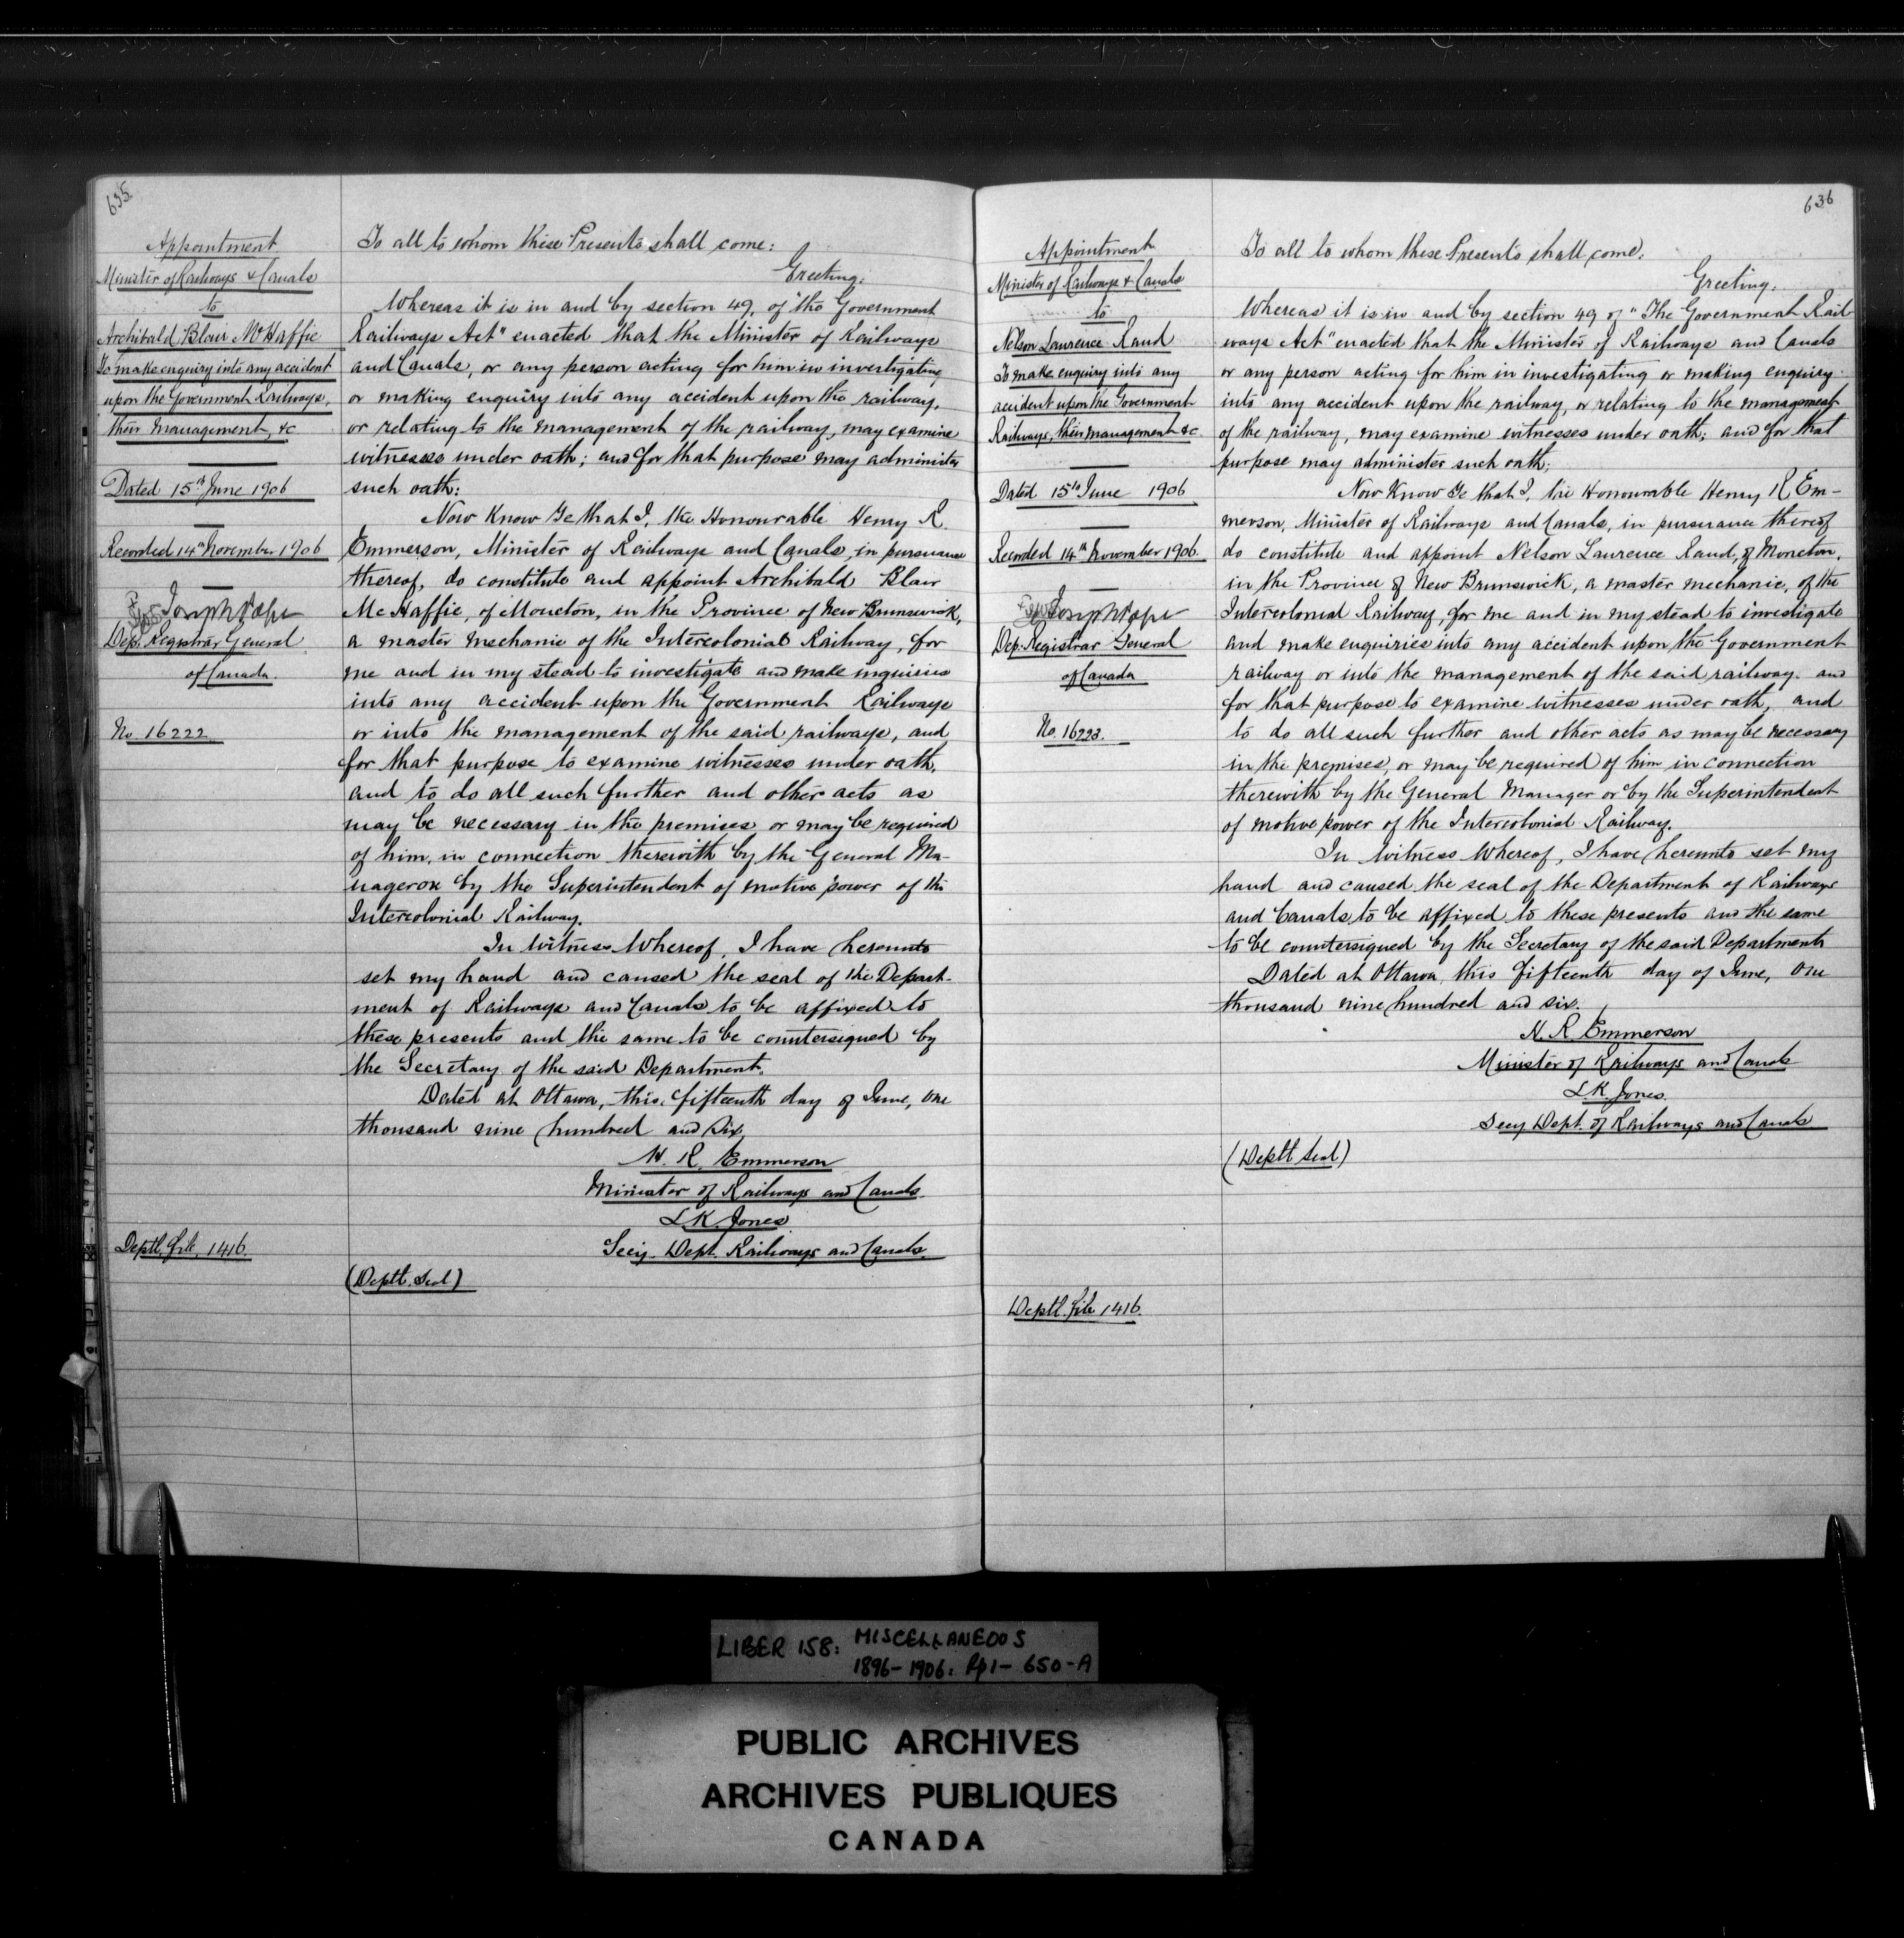 635.
Appointment
Minister of Railways & Canals
to
Archibald Blair McHaffie
To make enquiry into any accident
upon the Government Railways,
their management, &c
Dated 15th June 1906
Recorded 14th November 1906
Joseph Pope
Dep. Registrar General
of Canada.
No. 16222
Deptl. file, 1416.
To all to whom these Presents shall come:
Greeting:
Whereas it is in and by section 49, of "the Government
Railways Act" enacted that the Minister of Railways
and Canals, or any person acting for him in investigating
or making enquiry into any accident upon the railway,
or relating to the management of the railway, may examine
witnesses under oath; and for that purpose may administer
such oath:
Now Know Ye that I, the Honourable Henry R.
Emmerson, Minister of Railways and Canals, in pursuance
thereof, do constitute and appoint Archibald Blair
McHaffie, of Moncton, in the Province of New Brunswick,
a master mechanic of the Intercolonial Railway, for
me and in my stead to investigate and make inquiries
into any accident upon the Government Railways
or into the management of the said railways, and
for that purpose to examine witnesses under oath,
and to do all such further and other acts as
may be necessary in the premises or may be required
of him, in connection therewith by the General Ma-
nager or by the Superintendent of motive power of the
Intercolonial Railway.
In Witness Whereof, I have hereunto
set my hand and caused the seal of the Depart-
ment of Railways and Canals to be affixed to
these presents and the same to be countersigned by
the Secretary of the said Department.
Dated at Ottawa, this fifteenth day of June, one
thousand nine hundred and six.
H. R. Emmerson
Minister of Railways and Canals.
L. K. Jones
Secy. Dept. Railways and Canals.
(Deptl. Seal)
636
Appointment
Minister of Railways & Canals
to
Nelson Laurence Rand
To make enquiry into any
accident upon the Government
Railways, their management &c.
Dated 15th June 1906
Recorded 14th November 1906.
Joseph Pope
Dep. Registrar General
of Canada
No. 16223.
Deptl. file 1416.
To all to whom these Presents shall come.
Greeting.
Whereas it is in and by section 49 of "The Government Rail
ways Act" enacted that the Minister of Railways and Canals
or any person acting for him in investigating or making enquiry
into any accident upon the railway, or relating to the management
of the railway, may examine witnesses under oath; and for that
purpose may administer such oath;
Now Know Ye that I, the Honourable Henry R. Em-
merson, Minister of Railways and Canals, in pursuance thereof
do constitute and appoint Nelson Laurence Rand, of Moncton,
in the Province of New Brunswick, a master mechanic, of the
Intercolonial Railway, for me and in my stead to investigate
and make enquiries into any accident upon the Government
railway or into the management of the said railway. and
for that purpose to examine witnesses under oath, and
to do all such further and other acts as may be necessary
in the premises, or may be required of him in connection
therewith by the General Manager or by the Superintendent
of motive power of the Intercolonial Railway.
In Witness Whereof, I have hereunto set my
hand and caused the seal of the Department of Railways
and Canals to be affixed to these presents and the same
to be countersigned by the Secretary of the said Department
Dated at Ottawa this fifteenth day of June, one
thousand nine hundred and six.
H. R. Emmerson
Minister of Railways and Canals
L. K. Jones.
Secy Dept. of Railways and Canals
(Deptl Seal)
LIBER 158: MISCELLANEOUS
1896-1906: Pp 1-650-A
PUBLIC ARCHIVES
ARCHIVES PUBLIQUES
CANADA